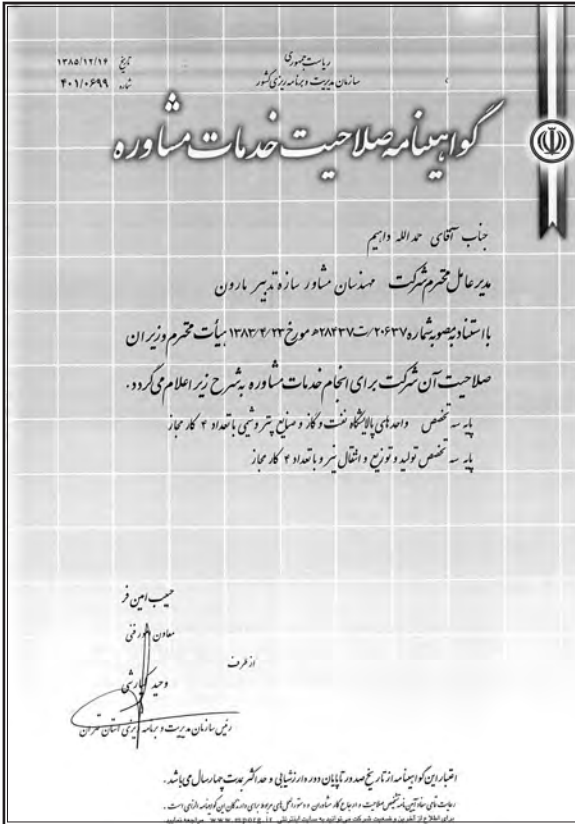 ریاست جمهوری
سازمان مدیریت و برنامه ریزی کشور
تاریخ ۱۳۸۵/۱۲/۱۴
شماره ۴۰۱/۰۶۹۹
گواهینامه صلاحیت خدمات مشاوره
جناب آقای حمدالله دائیم
مدیرعامل محترم شرکت مهندسان مشاور سازه تدبیر مارون
بااستناد به مصوبه شماره ۲۰۶۳۷/ت۲۸۴۳۷ه مورخ ۱۳۸۳/۴/۲۳ هیأت محترم وزیران
صلاحیت آن شرکت برای انجام خدمات مشاوره بشرح زیر اعلام می‌گردد.
پایه سه تخصص واحدهای پالایشگاه نفت و گاز و صنایع پتروشیمی با تعداد ۴ کار مجاز
پایه سه تخصص تولید و توزیع و انتقال نیرو با تعداد ۴ کار مجاز
حبیب امین فر
معاون امور فنی
از طرف
وحید
رئیس سازمان مدیریت و برنامه ریزی استان تهران
اعتبار این گواهینامه از تاریخ صدور تا پایان دوره ارزشیابی و حداکثر بمدت چهار سال می‌باشد.
رعایت مفاد آیین نامه تشخیص صلاحیت و ارجاع کار مشاوران و دستورالعمل های مربوط برای دارندگان این گواهینامه الزامی است.
برای اطلاع از آخرین وضعیت شرکت می توانید به سایت اینترنتی www.mporg.ir مراجعه نمایید.